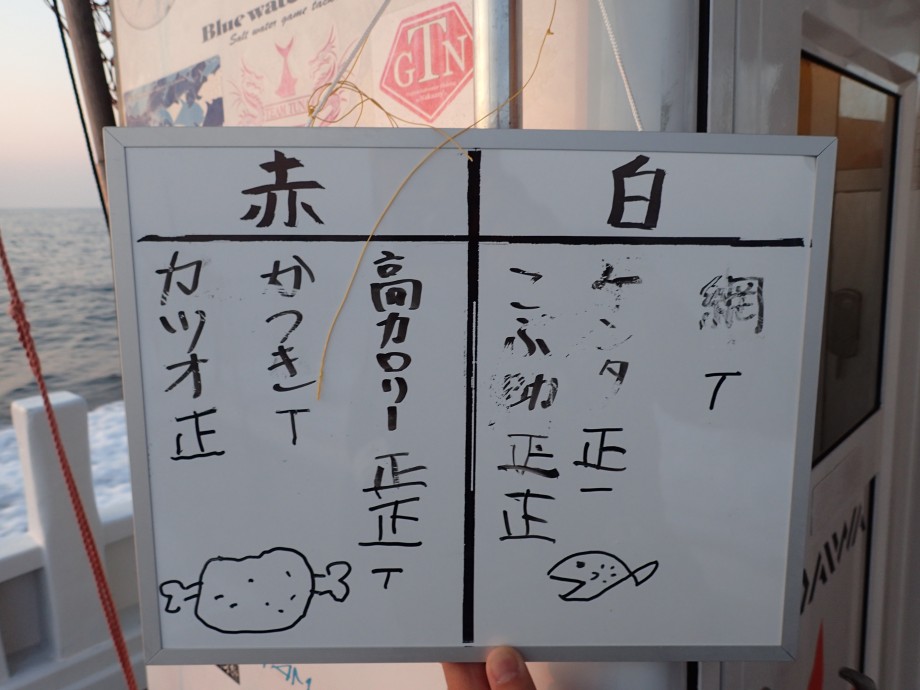 Blue wat
Salt water game
GTN
赤
白
高カロリー 正正T
かつき T
カツオ 正
網 T
ケンタ 正一
こふ 正正
DAIWA